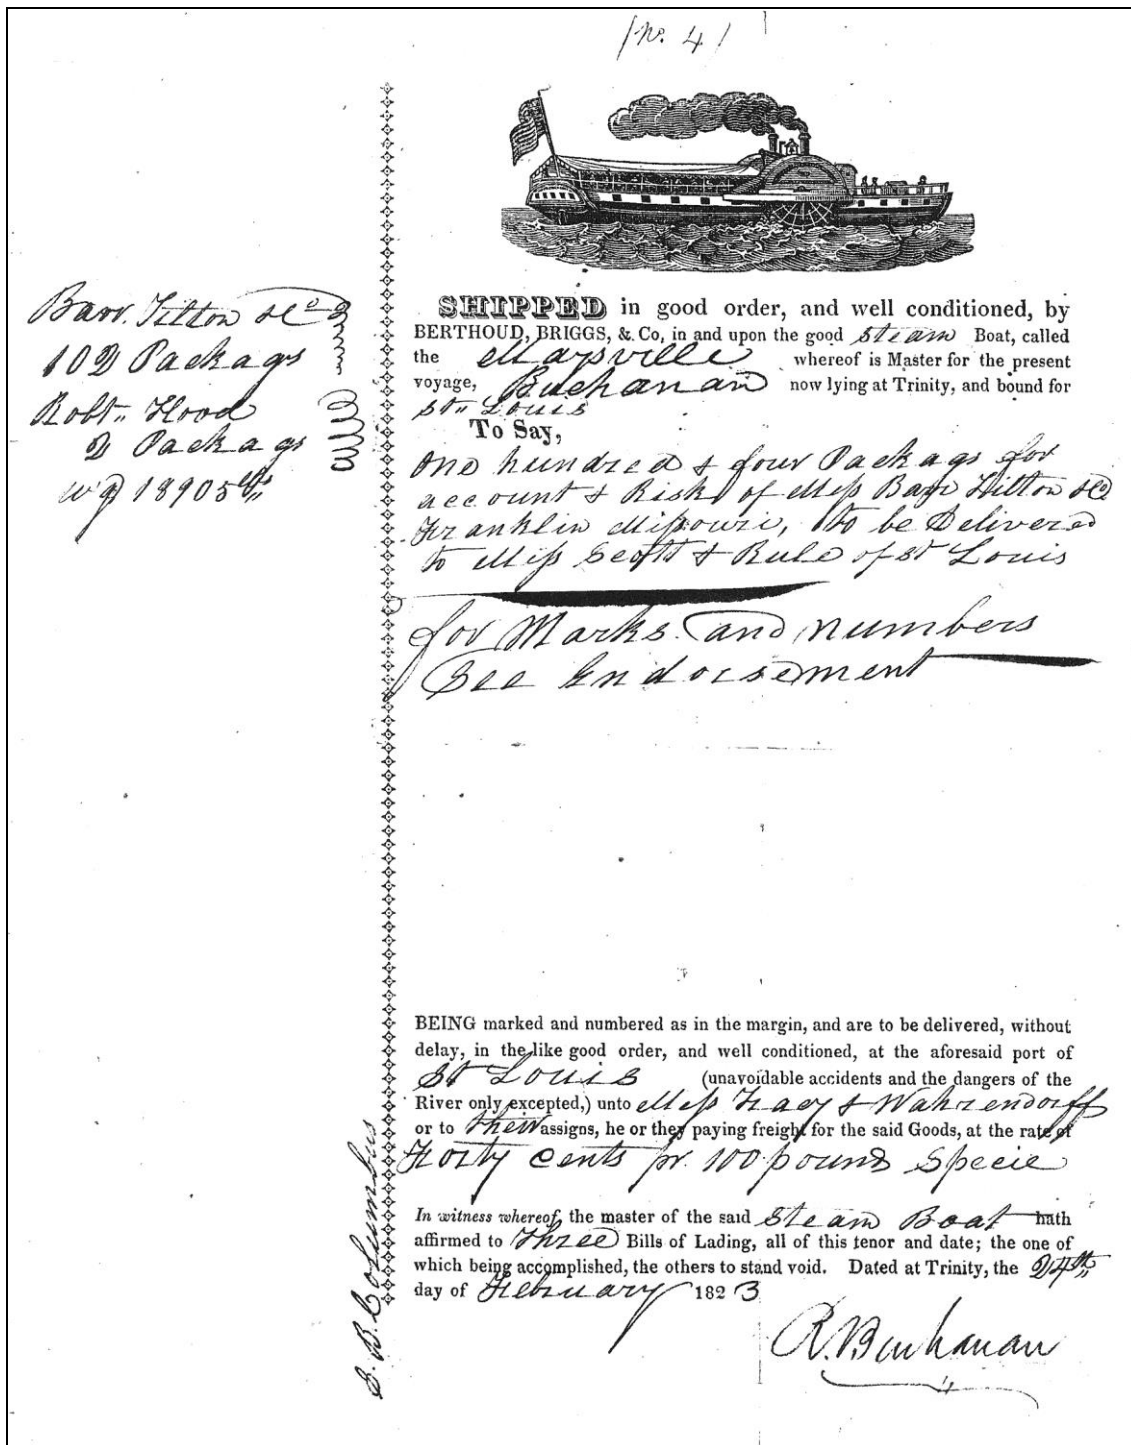 /No. 4/
Barr. Tilton & Co
102 Packags
Robt,, Hood
2 Packags
w'g 18905 lbs,,
SHIPPED in good order, and well conditioned, by
BERTHOUD, BRIGGS, & Co, in and upon the good steam Boat, called
the Maysville whereof is Master for the present
voyage, Buchanan now lying at Trinity, and bound for
St,, Louis
To Say,
One hundred & four Packags for
account & Risk of Mess Barr Tilton & Co
Franklin Missouri, to be Delivered
to Mess Scott & Rule of St Louis
for Marks and numbers
See Endorsement
BEING marked and numbered as in the margin, and are to be delivered, without
delay, in the like good order, and well conditioned, at the aforesaid port of
St Louis (unavoidable accidents and the dangers of the
River only excepted,) unto Mess Tracy & Wahrendorff
or to their assigns, he or they paying freight for the said Goods, at the rate of
Forty cents pr. 100 pounds Specie
In witness whereof, the master of the said Steam Boat hath
affirmed to Three Bills of Lading, all of this tenor and date; the one of
which being accomplished, the others to stand void. Dated at Trinity, the 24th,,
day of February 1823
R. Buchanan
S. B. Columbus